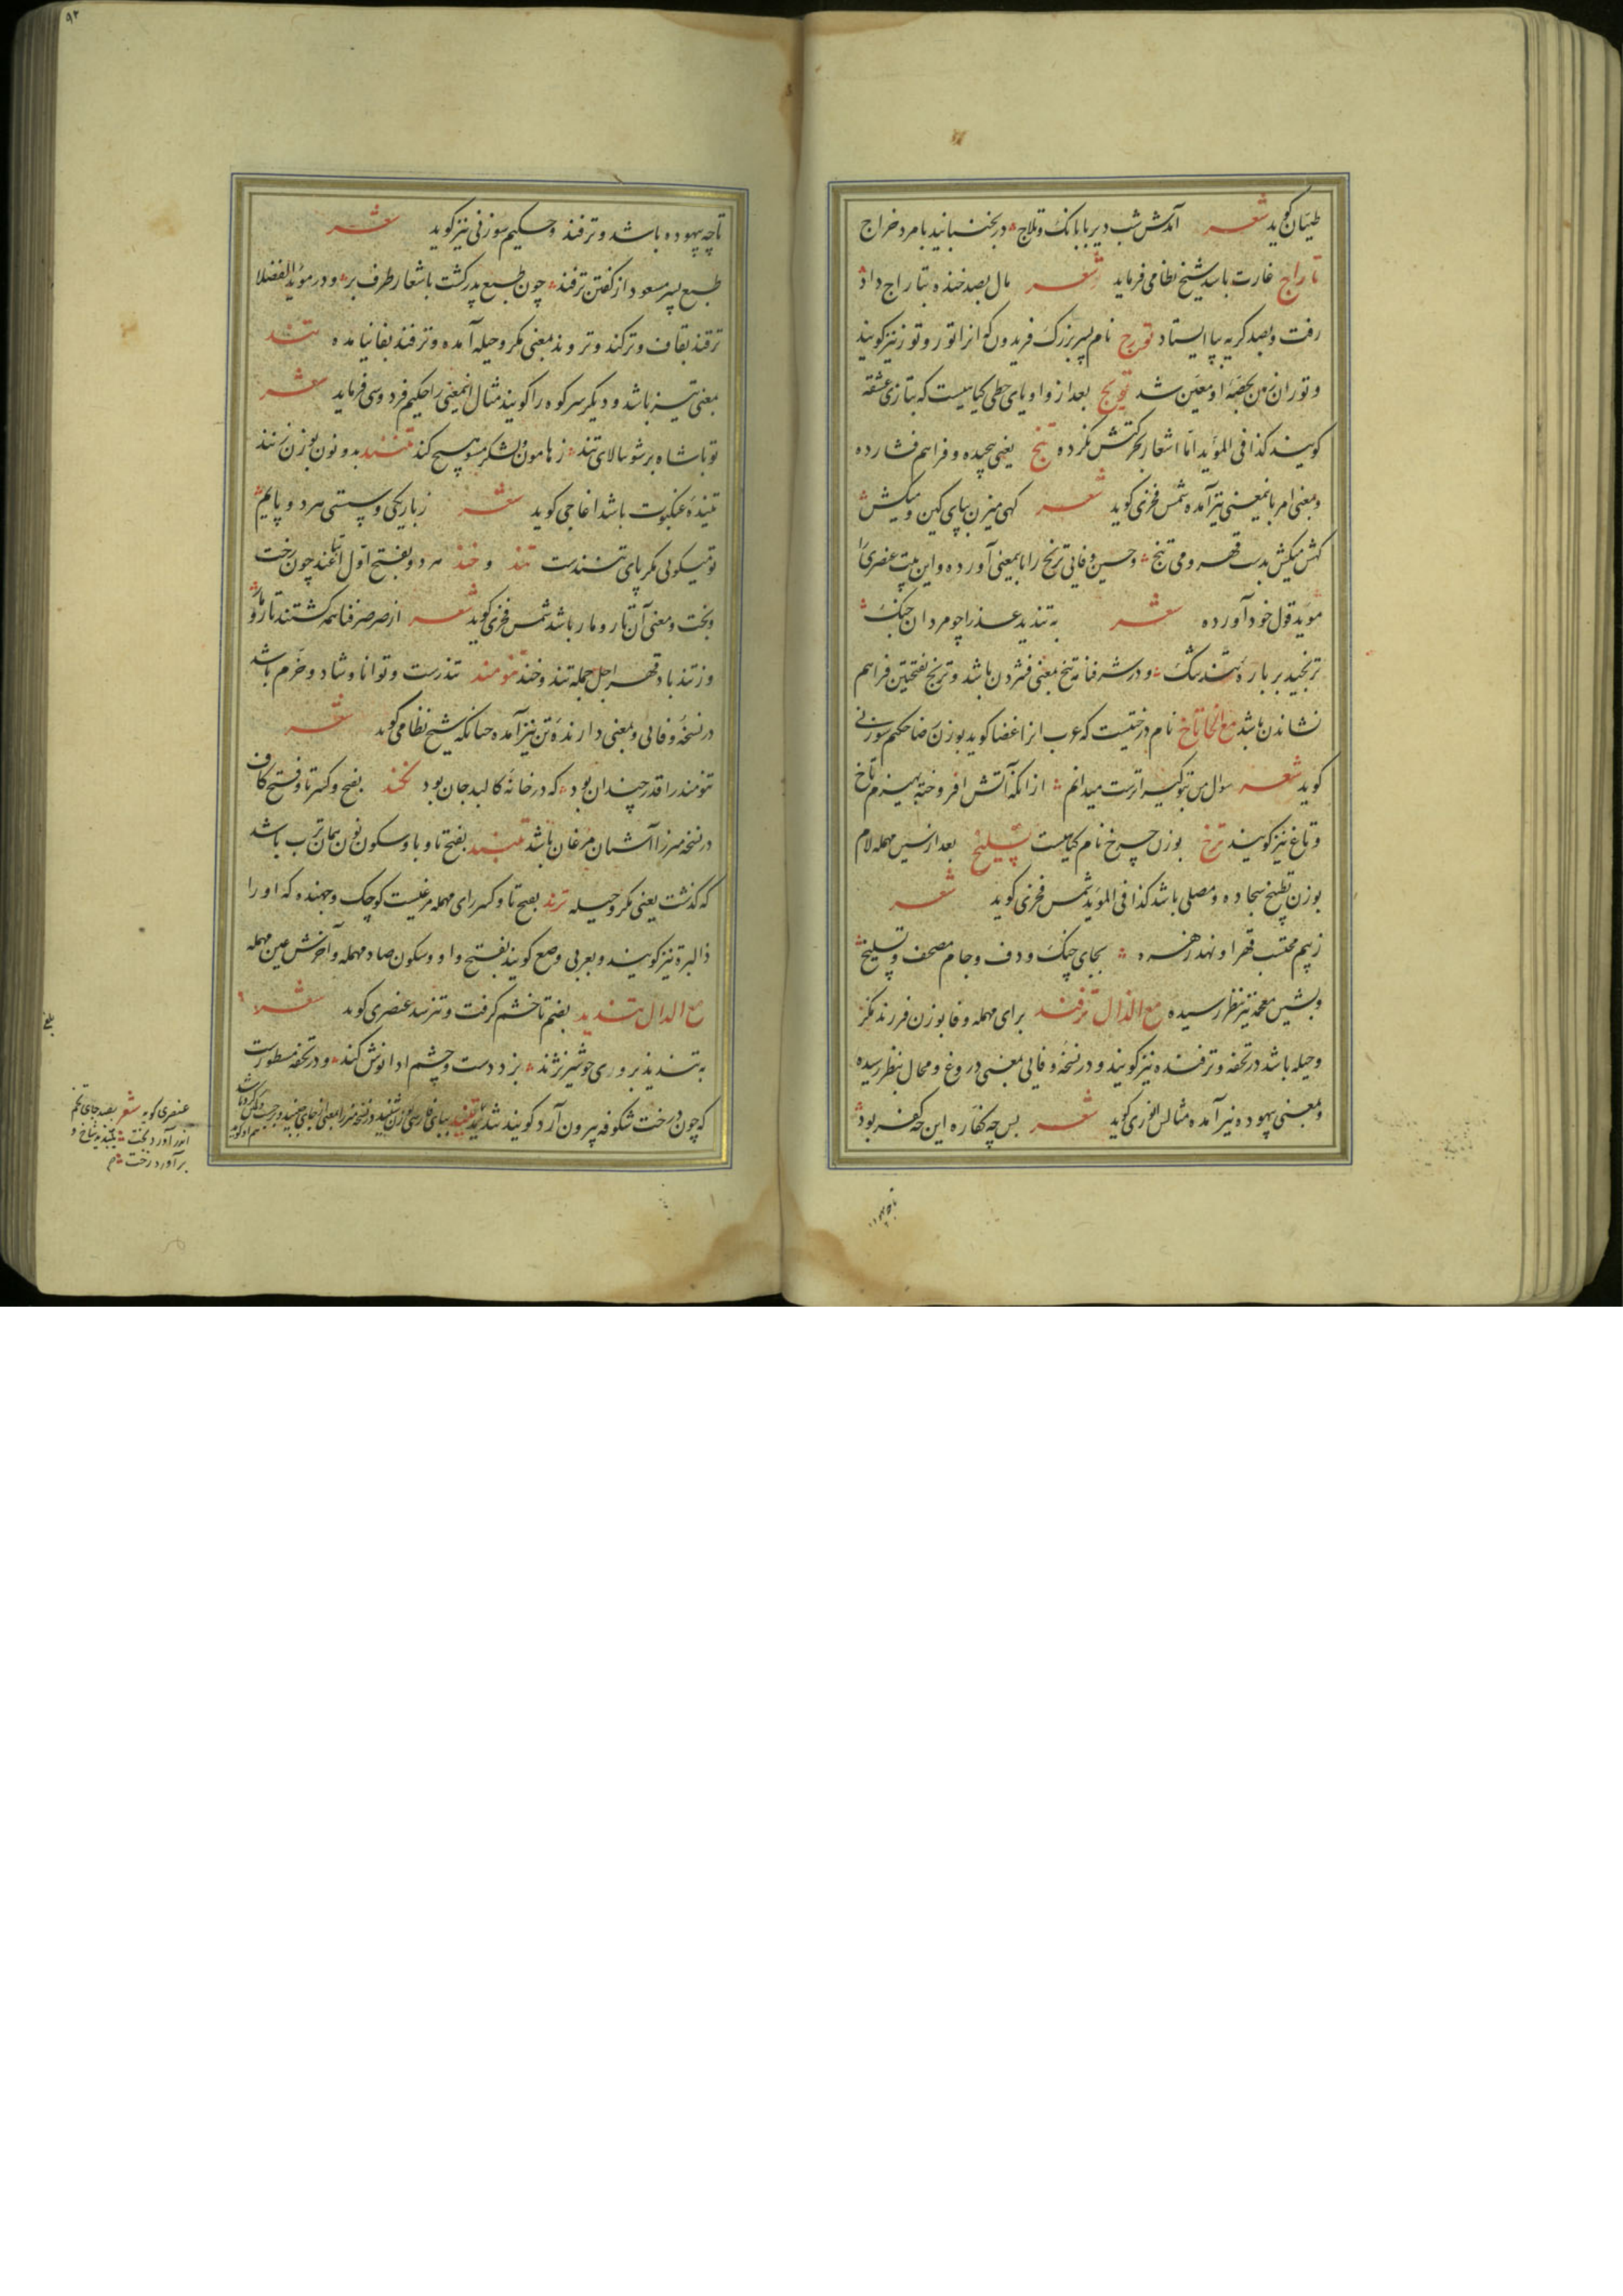 طیان گوید شعر آمدش شب دیر با بانک و تلاج در بجنبانید با مرد خراج
تاراج غارت باشد شیخ نظامی فرماید شعر مال بصد خنده بتاراج داد
رفت و بصد کریه بپا ایستاد تورج نام پسر بزرک فریدون که انرا تور و توز نیز کویند
و توران زمین بحصّه او معیّن شد تویج بعد از واو یای حطی کیاهیست که بتازی عشقه
کویند کذا فی المؤید امّا اشعار بحرکتش نکرده تنج یعنی پیچیده و فراهم فشارده
و بمعنی امر باینمعنی نیز آمده شمس فخری کوید شعر کهی میزن بپای کین و میکش
کهش میکش بدست قهر و می تنج و حسین وفایی ترنج را باینمعنی آورده و این بیت عنصری را
مؤید قول خود آورده شعر به تندید عذرا چو مردان جنک
ترنجید بر باره تند تنک و در شرفنامه تنج بمعنی فشردن باشد و ترنج بفتحتین فراهم
نشاندن باشد مع الخا تاخ نام درختیست که عرب انرا غضا کوید بوزن رضا حکیم سوزنی
کوید شعر سوال من بتو کیرا ترست میدانم از انکه آتش افروخته بهیزم تاخ
و تاغ نیز کویند ترخ بوزن چرخ نام کیاهیست تسلیخ بعد از سین مهمله لام
بوزن تطبیخ سجاده و مصلی باشد کذا فی المؤید شمس فخری کوید شعر
ز بیم محتسب قهر او نهد زهره بجای چنک و دف و جام مصحف و تسلیخ
و بشین معجمه نیز بنظر رسیده مع الدال ترفند برای مهمله و فا بوزن فرزند مکر
و حیله باشد در تحفه و ترفنده نیز کویند و در نسخه وفایی بمعنی دروغ و محال بنظر رسیده
و بمعنی بیهوده نیز آمده مثالش انوری کوید شعر پس چه کفاره این که کفر بود
تا چه بیهوده باشد و ترفند و حکیم سوزنی نیز کوید شعر
طبع پسر مسعود از کفتن ترفند چون طبع پدر کشت باشعار طرف بر و در مؤید الفضلا
ترقند بقاف و ترکند و تروند بمعنی مکر و حیله آمده و ترفند بفا نیامده تند
بمعنی تیز باشد و دیکر سر کوه را کویند مثال اینمعنی را حکیم فردوسی فرماید شعر
تو با شاه بر شو ببالای تند ز هامون لشکر مشو هیچ کند تنند بدو نون بوزن زنند
تننده عنکبوت باشد اغاجی کوید شعر ز باریکی و سستی هر دو پایم
تو میکویی مکر پای تنندست تند و خند هر دو بفتح اول اتباعند چون رخت
و پخت و معنی آن تار و مار باشد شمس فخری کوید شعر از صرصر فنا همه کشتند تار و مار
وز تند باد قهر اجل جمله تند و خند تنومند تندرست و توانا و شاد و خرّم باشد
در نسخه وفایی و بمعنی دارنده تن نیز آمده چنانکه شیخ نظامی کوید شعر
تنومند را قدر چندان بود که در خانه کالبد جان بود تکند بفتح و کسر تا و فتح کاف
در نسخه میرزا آشیان مرغان باشد تبند بفتح تا و با و سکون نون همان ترب باشد
که کذشت یعنی مکر و حیله ترند بفتح تا و کسر رای مهمله مرغیست کوچک و جهنده که او را
ذالبره نیز کویند و بعربی وصع کویند بفتح واو و سکون صاد مهمله و آخرش عین مهمله
مع الدال تندید بضم تا خشم کرفت و تیز شد عنصری کوید شعر
به تندید بروری جو شیر نژند بزد دست و چشم ادانوش کند و در تحفه مسطورست
که چون درخت شکوفه بیرون آرد کویند تندید
عنصری کوید شعر بصد جای تخم
اندر آورد بخت بتندید شاخ و
برآورد رخت